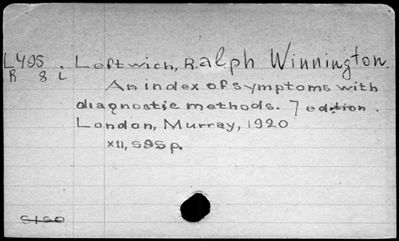 L495 . Leftwich, Ralph Winnington.
R 8 i
An index of symptoms with
diagnostic methods. 7 edition.
London, Murray, 1920
XII, 595 p.
5150